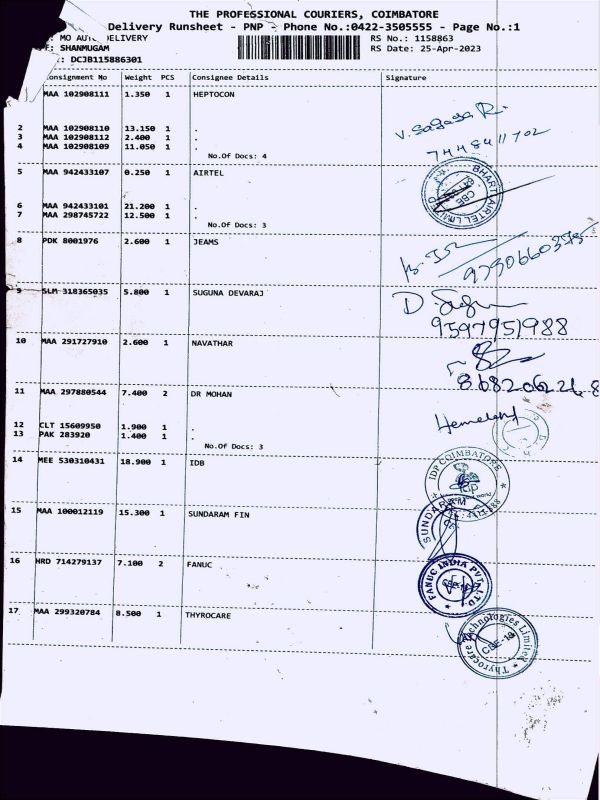 THE PROFESSIONAL COURIERS, COIMBATORE
Delivery Runsheet - PNP - Phone No.:0422-3505555 - Page No.:1
: MO AUTO DELIVERY RS No.: 1158863
: SHANMUGAM RS Date: 25-Apr-2023
: DCJB115886301
onsignment No Weight PCS Consignee Details Signature
MAA 102908111 1.350 1 HEPTOCON
2 MAA 102908110 13.150 1 .
3 MAA 102908112 2.400 1 .
4 MAA 102908109 11.050 1 .
No.Of Docs: 4
V. R.
7448411702
5 MAA 942433107 0.250 1 AIRTEL
6 MAA 942433101 21.200 1 .
7 MAA 298745722 12.500 1 .
No.Of Docs: 3
BHARTI AIRTEL LIMITED
CBE
8 PDK 8001976 2.600 1 JEAMS
9 SLM 318365035 5.800 1 SUGUNA DEVARAJ
D.
9597951988
10 MAA 291727910 2.600 1 NAVATHAR
11 MAA 297880544 7.400 2 DR MOHAN
12 CLT 15609950 1.900 1 .
13 PAK 283920 1.400 1 .
No.Of Docs: 3
14 MEE 530310431 18.900 1 IDB
IDP COIMBATORE
idp
15 MAA 100012119 15.300 1 SUNDARAM FIN
SUNDARAM
16 HRD 714279137 7.100 2 FANUC
FANUC INDIA PVT. LTD.
17 MAA 299320784 8.500 1 THYROCARE
Thyrocare Technologies Limited
CBE-18